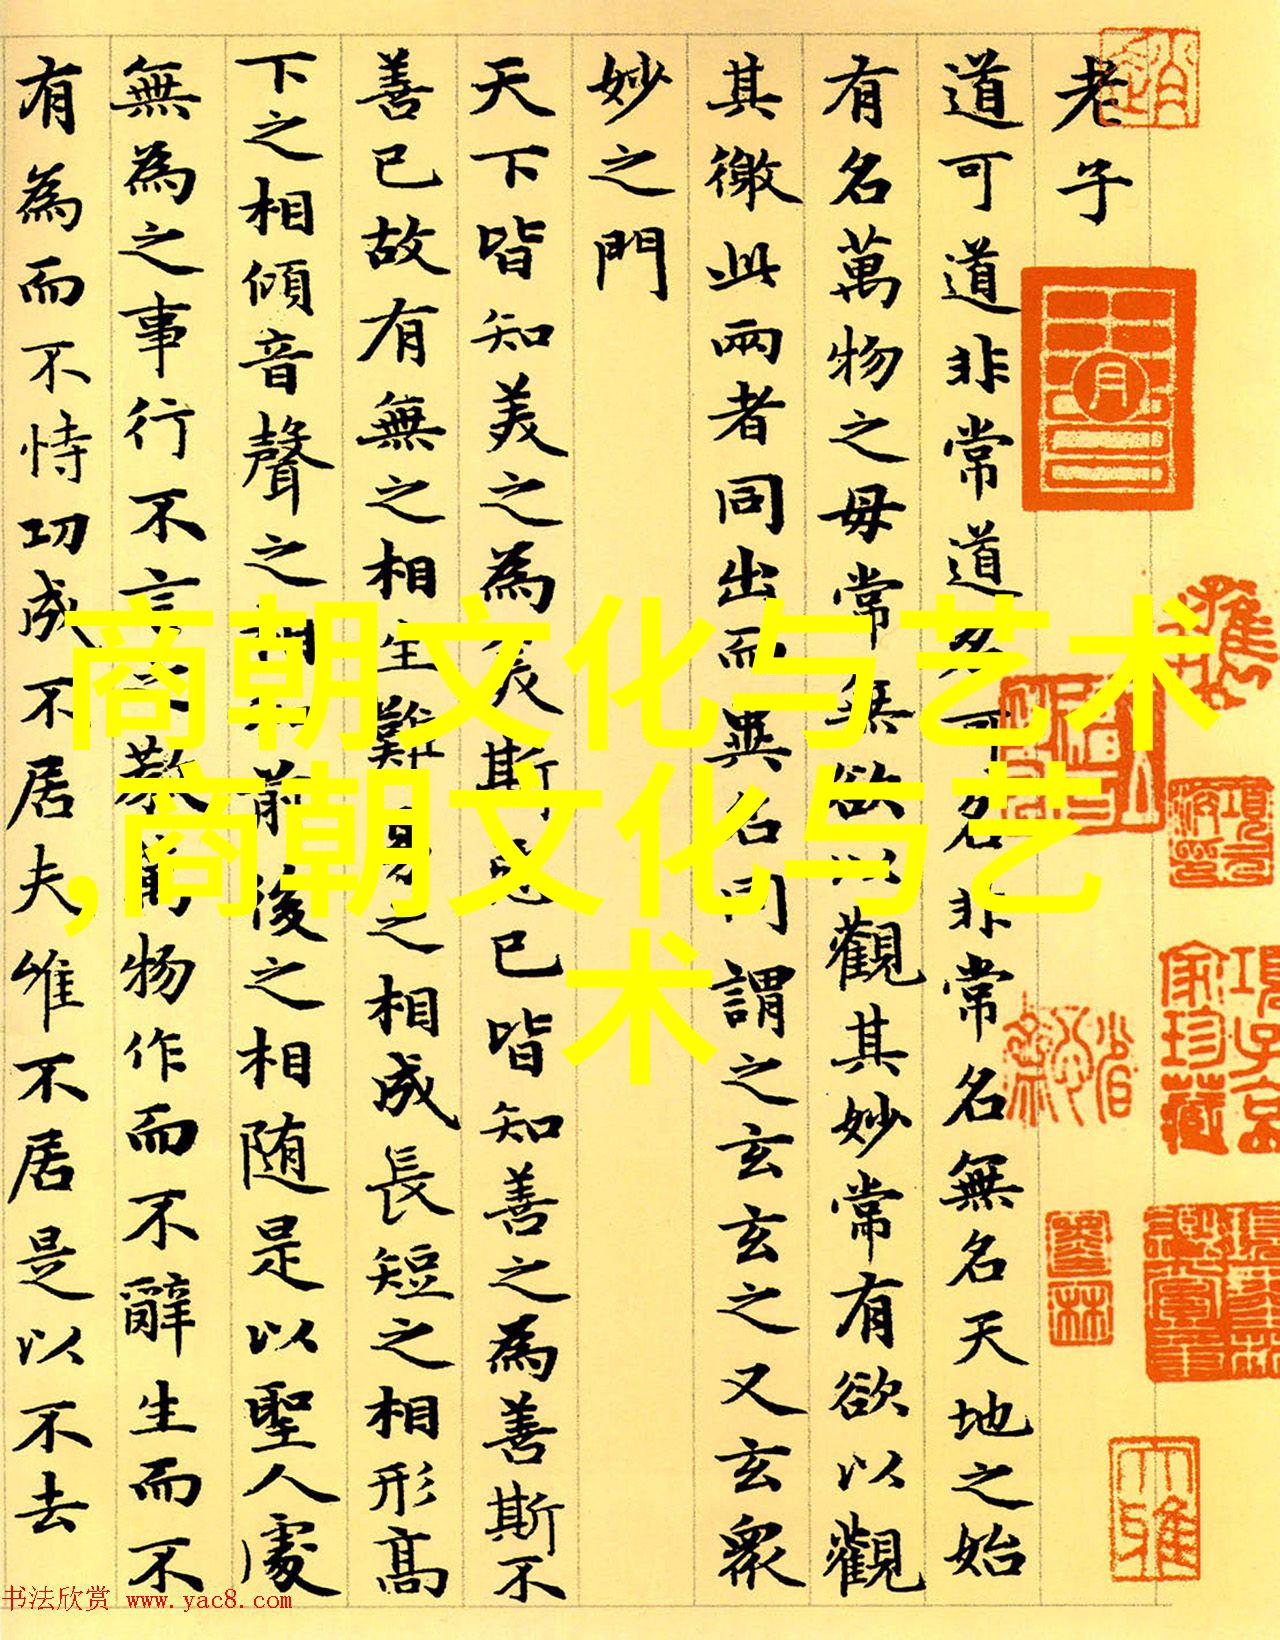 老子
道可道非常道名可名非常名無名天地之始
有名萬物之母常無欲以觀其妙常有欲以觀
其徼此兩者同出而異名同謂之玄玄之又玄衆
妙之門
天下皆知美之為美斯惡已皆知善之為善斯不
善已故有無之相生難易之相成長短之相形高
下之相傾音聲之相和前後之相随是以聖人處
無為之事行不言之教萬物作而不辭生而不
有為而不恃功成不居夫唯不居是以不去
商朝文化与艺术
,商朝文化与艺
术
項子京
家珍藏
书法欣赏 www.yac8.com